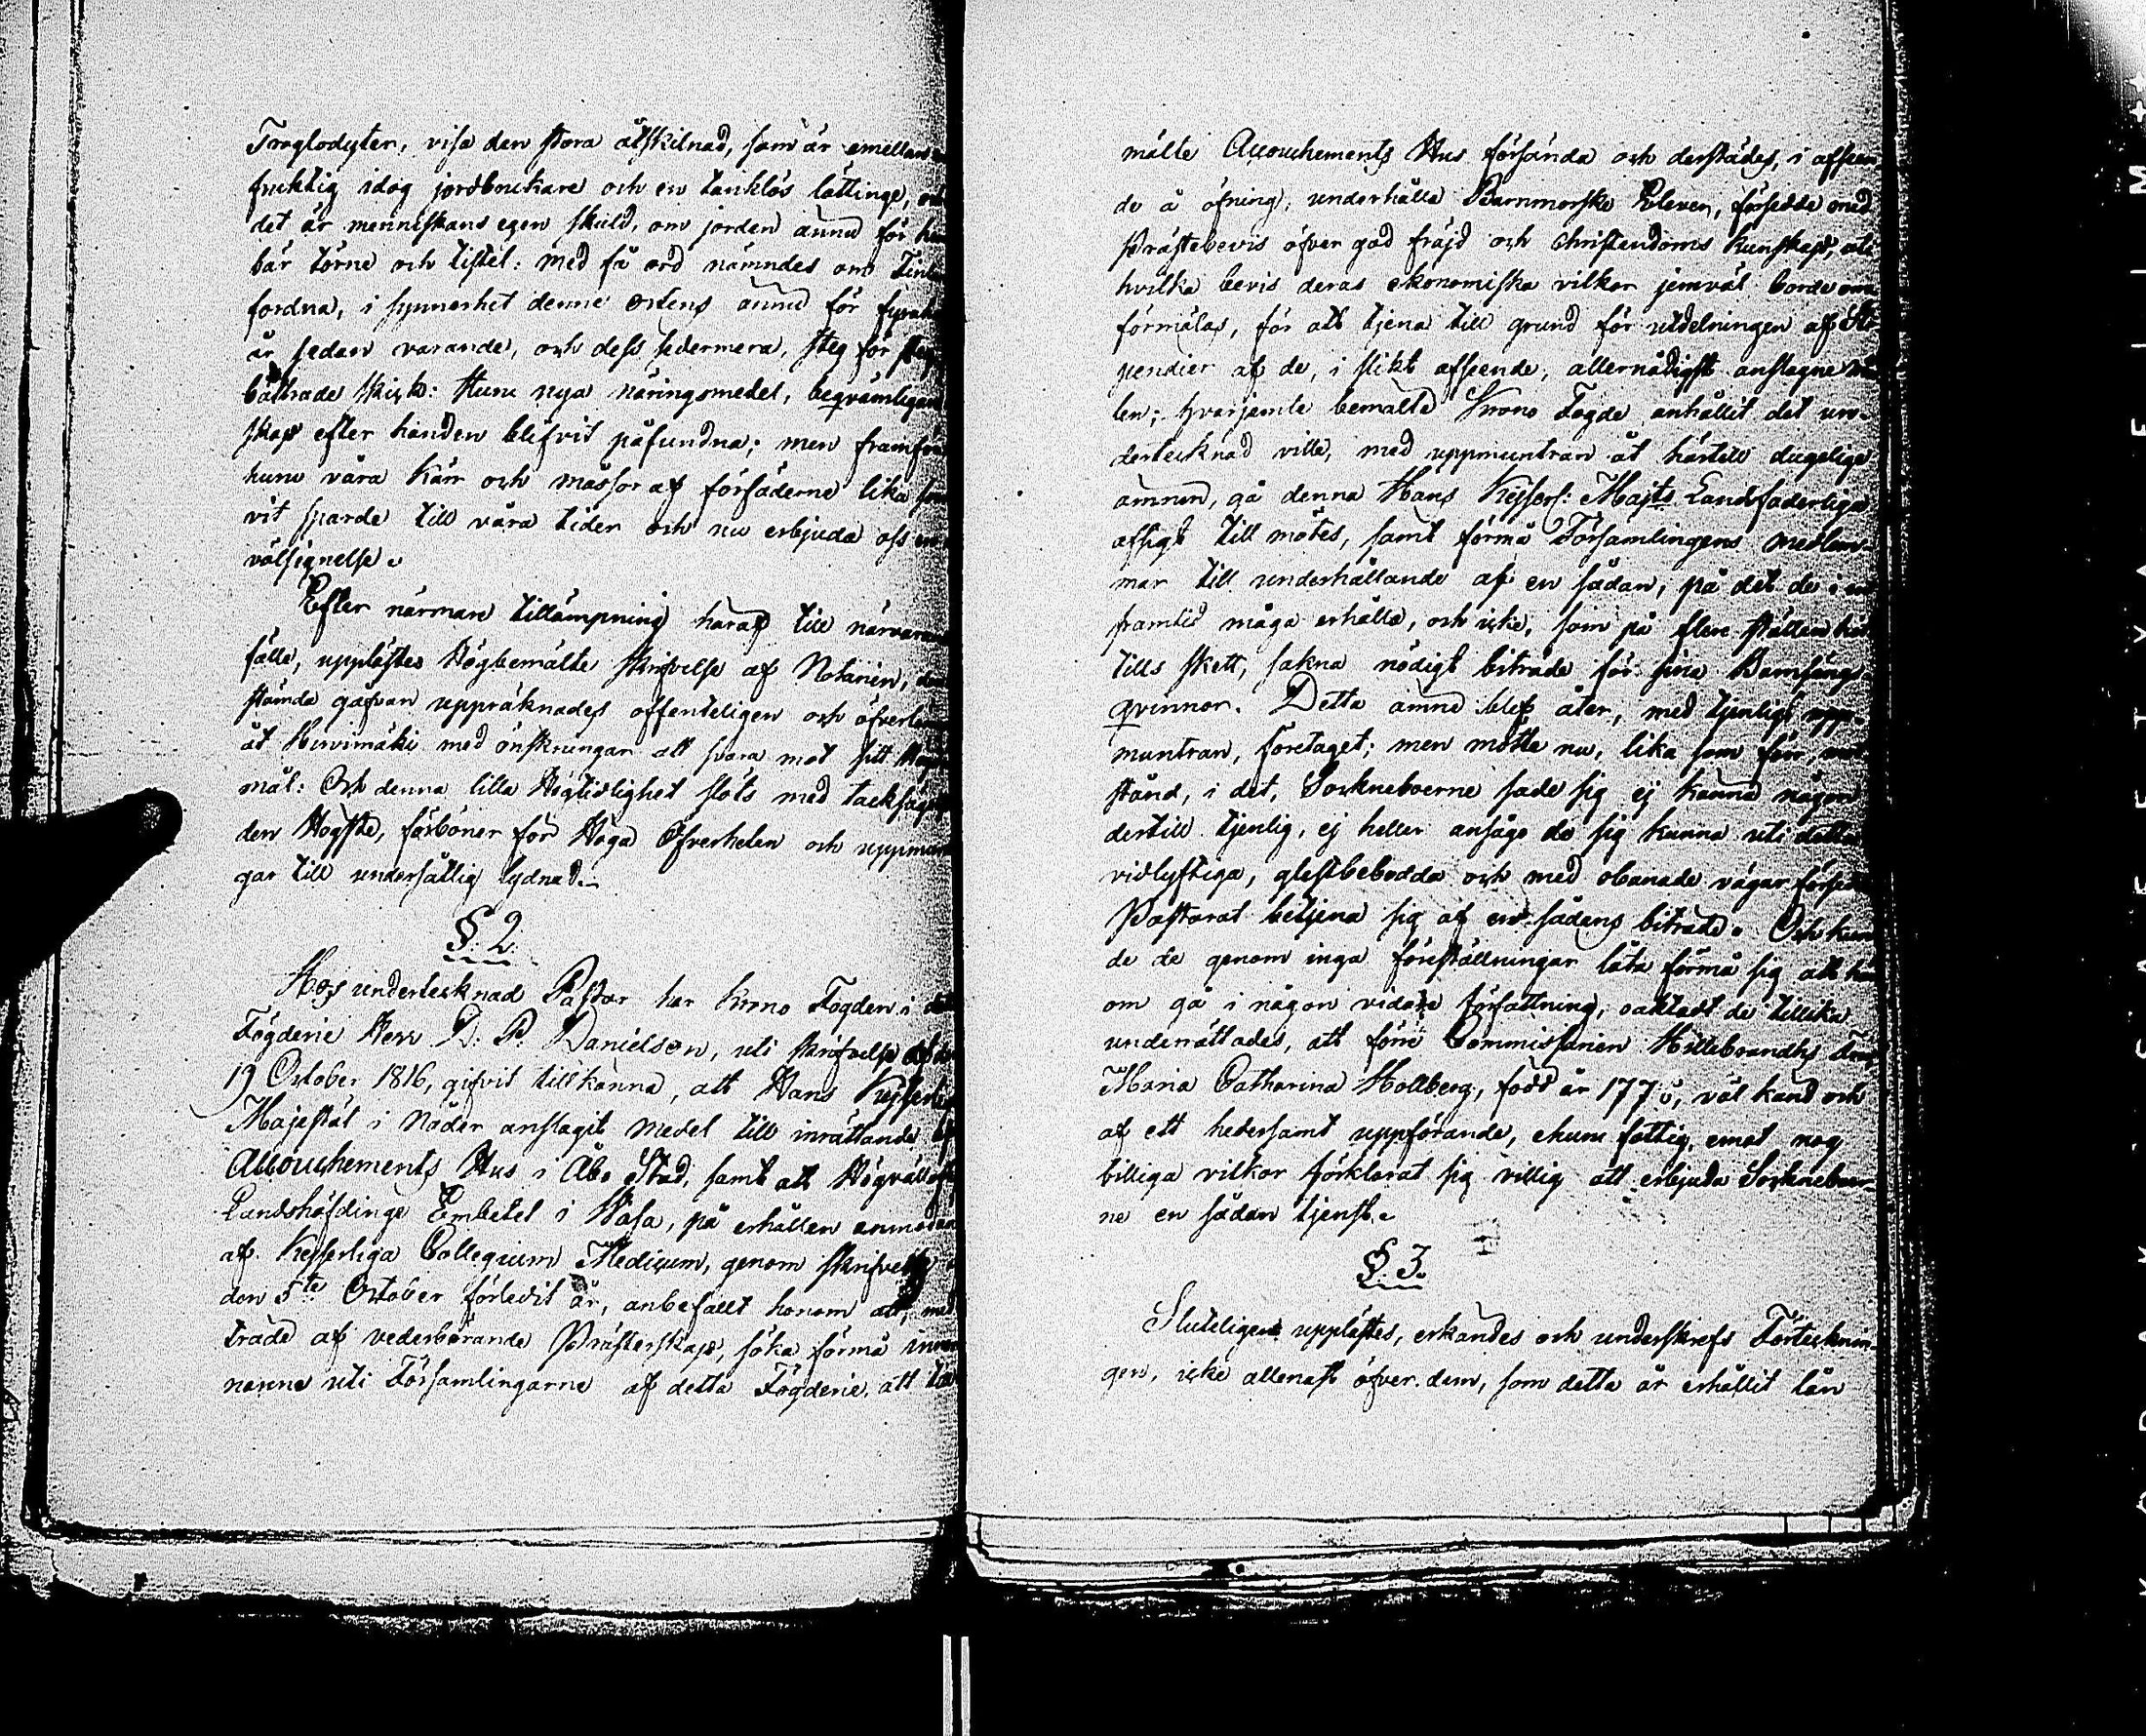 Troglodyter, visa den stora åtskilnad, som är emellan
fruktig idog jordbrukare och en tanklös lättinge, och
det är menniskans egen skuld, om jorden ännu för
bär törne och tistel: med få ord nämndes om
fordna, i synnerhet denne ortens ännu för
år sedan varande, och dess sedermera, steg för steg
bättrade skick: Huru nya näringsmedel, beqvämligare
skap efter handen blifvit påfundna; men framför
huru våra Kärr och mossor af förfäderne lika som
vit sparde till våra tider och nu erbjuda oss en
välsignelse.
Efter närmare tillämpning häraf till närvarande
fälle, upplästes Högbemälte skrifvelse af Notarien,
stämda gåfvan uppräknades offenteligen och öfverlem
åt Hirvimäki med önskningar att svara mot sitt
mål: Och denna lilla Högtidlighet slöts med tacksäg
den Högste, förböner för Höga Öfverheten och uppmun
gar till undersåtlig lydnad.
§. 2.
Hos undertecknad Pastor har Krono Fogden i
Fögderie Herr D. P. Danielson, uti skrifvelse af
19 October 1816, gifvit tillkänna, att Hans Kejserliga
Majestät i Nåder anslagit medel till inrättande af
Accouchements Hus i Åbo Stad, samt att Högväl
Landshöfdinge Embetet i Wasa, på erhållen anmodan
af Kejserliga Collegium Medicum, genom skrifvelse
den 5te October förledit år, anbefallt honom att, med
träde af vederbörande Prästerskap, söka förmå
narena uti Församlingarne af detta Fögderie, att
mälte Accouchements Hus försända och derstädes, i afseen
de å öfning, underhålla Barnmorske Elever, försedde med
Prästebevis öfver god fräjd och Christendoms kunskap, uti
hvilka bevis deras ekonomiska vilkor jemväl borde om
förmälas, för att tjena till grund för utdelningen af Sti
pendier af de, i slikt afseende, allernådigst anslagne me
len; hvarjemte bemälte Krono Fogde anhållit det un-
dertecknad ville, med uppmuntran åt härtill dugelige
ämnen, gå denna Hans Kejserl: Majts Landsfaderliga
afsigt till mötes, samt förmå Församlingens medlem-
mar till underhållande af en sådan; på det de i en
framtid måga erhålla, och icke, som på flere ställen här
tills skett, sakna nödigt biträde för sina Barnsängs
qvinnor. Detta ämne blef åter, med tjenlig upp-
muntran, företaget; men mötte nu, lika som förr, mot
stånd, i det, Sockneboerne sade sig ej känna någon
dertill tjenlig, ej heller ansågo de sig kunna uti detta
vidlyftiga, glestbebodda och med obanade vägar försedda
Pastorat betjena sig af en sådans biträde. Och kun
de de genom inga föreställningar låta förmå sig att här
om gå i någon vidare författning, oaktadt de tillika
underrättades, att förre Commissarien Hillebrandts Enka
Maria Catharina Hollberg, född år 177, väl känd och
af ett hedersamt uppförande, ehuru fattig, emot nog
billiga vilkor förklarat sig villig att erbjuda Socknebor-
ne en sådan tjenst.
§. 3.
Sluteligen upplästes, erkändes och underskrefs Förtecknin-
gen, icke allenast öfver dem, som detta år erhållit lån